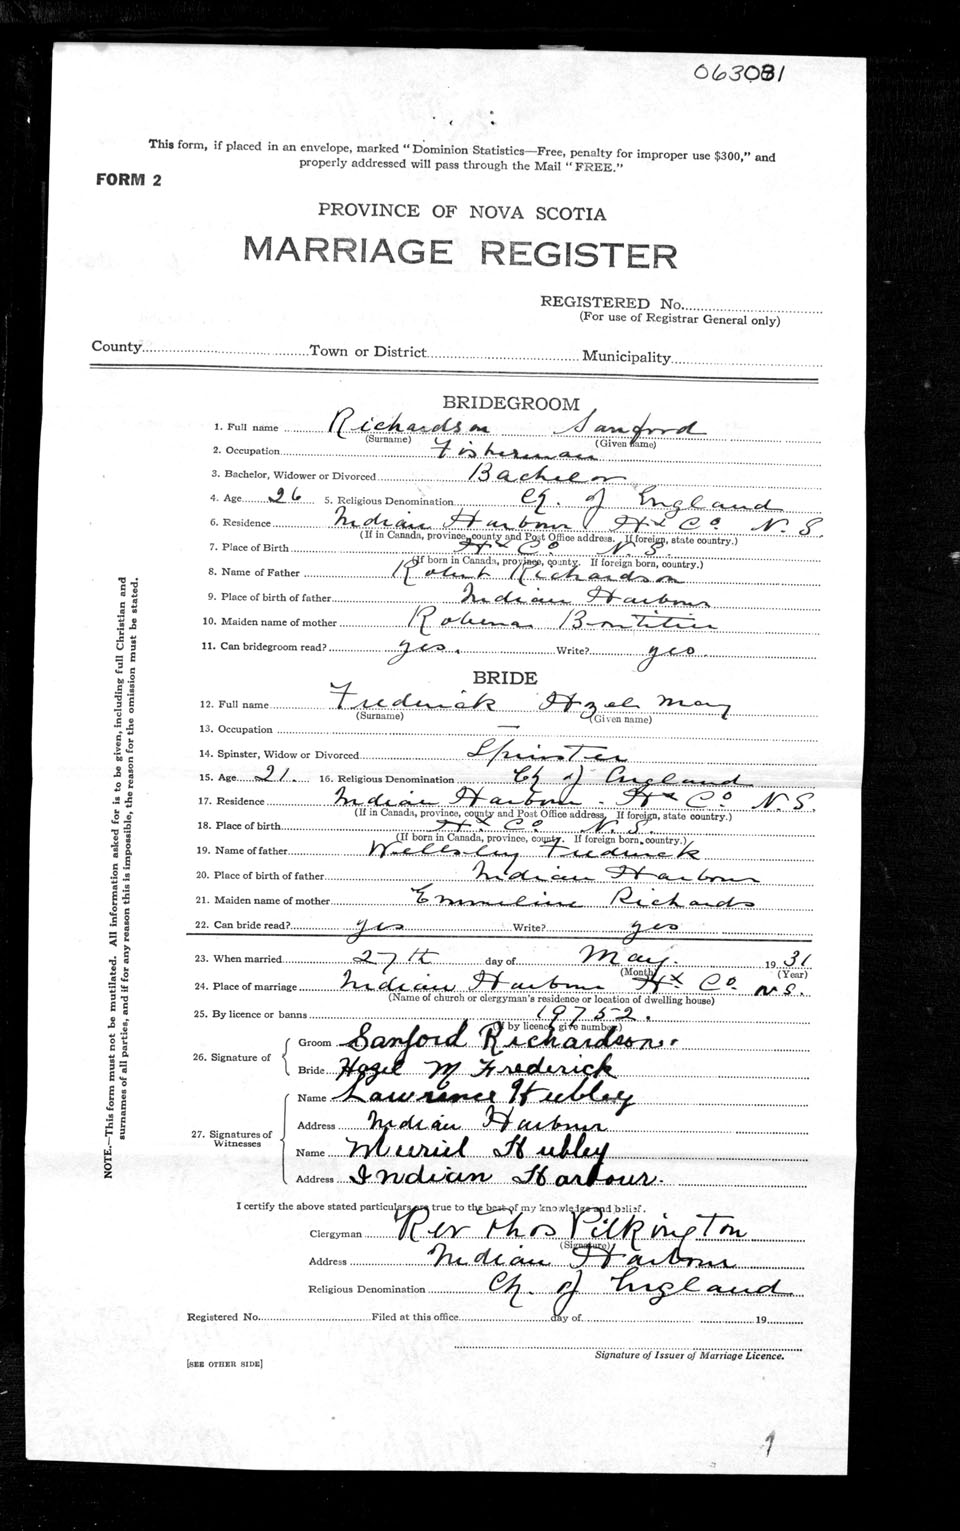 063081
This form, if placed in an envelope, marked "Dominion Statistics—Free, penalty for improper use $300," and
properly addressed will pass through the Mail "FREE."
FORM 2
PROVINCE OF NOVA SCOTIA
MARRIAGE REGISTER
REGISTERED No.
(For use of Registrar General only)
County Town or District Municipality
BRIDEGROOM
1. Full name Richardson Sanford
(Surname) (Given name)
2. Occupation Fisherman
3. Bachelor, Widower or Divorced Bachelor
4. Age 26 5. Religious Denomination Ch. of England
6. Residence Indian Harbour Hx Co. N.S.
(If in Canada, province, county and Post Office address. If foreign, state country.)
7. Place of Birth Hx Co N.S.
(If born in Canada, province, county. If foreign born, country.)
8. Name of Father Robert Richardson
9. Place of birth of father Indian Harbour
10. Maiden name of mother Robena Boutilier
11. Can bridegroom read? yes. Write? yes.
BRIDE
12. Full name Frederick Hazel May
(Surname) (Given name)
13. Occupation —
14. Spinster, Widow or Divorced Spinster
15. Age 21. 16. Religious Denomination Ch of England
17. Residence Indian Harbour - Hx Co N.S.
(If in Canada, province, county and Post Office address. If foreign, state country.)
18. Place of birth Hx Co N.S.
(If born in Canada, province, county. If foreign born, country.)
19. Name of father Wellsley Frederick
20. Place of birth of father Indian Harbour
21. Maiden name of mother Emmeline Richards
22. Can bride read? yes Write? yes
23. When married 27th day of May. 1931
(Month) (Year)
24. Place of marriage Indian Harbour Hx Co. N.S.
(Name of church or clergyman's residence or location of dwelling house)
25. By licence or banns 19752.
(If by licence, give number)
26. Signature of Groom Sanford Richardson.
Bride Hazel M Frederick
27. Signatures of Witnesses Name Lawrence Hubley
Address Indian Harbour
Name Muriel Hubley
Address Indian Harbour.
I certify the above stated particulars are true to the best of my knowledge and belief.
Clergyman Rev Thos Pilkington
(Signature)
Address Indian Harbour
Religious Denomination Ch. of England
Registered No. Filed at this office day of 19
Signature of Issuer of Marriage Licence.
[SEE OTHER SIDE]
NOTE.—This form must not be mutilated. All information asked for is to be given, including full Christian and
surnames of all parties, and if for any reason this is impossible, the reason for the omission must be stated.
1